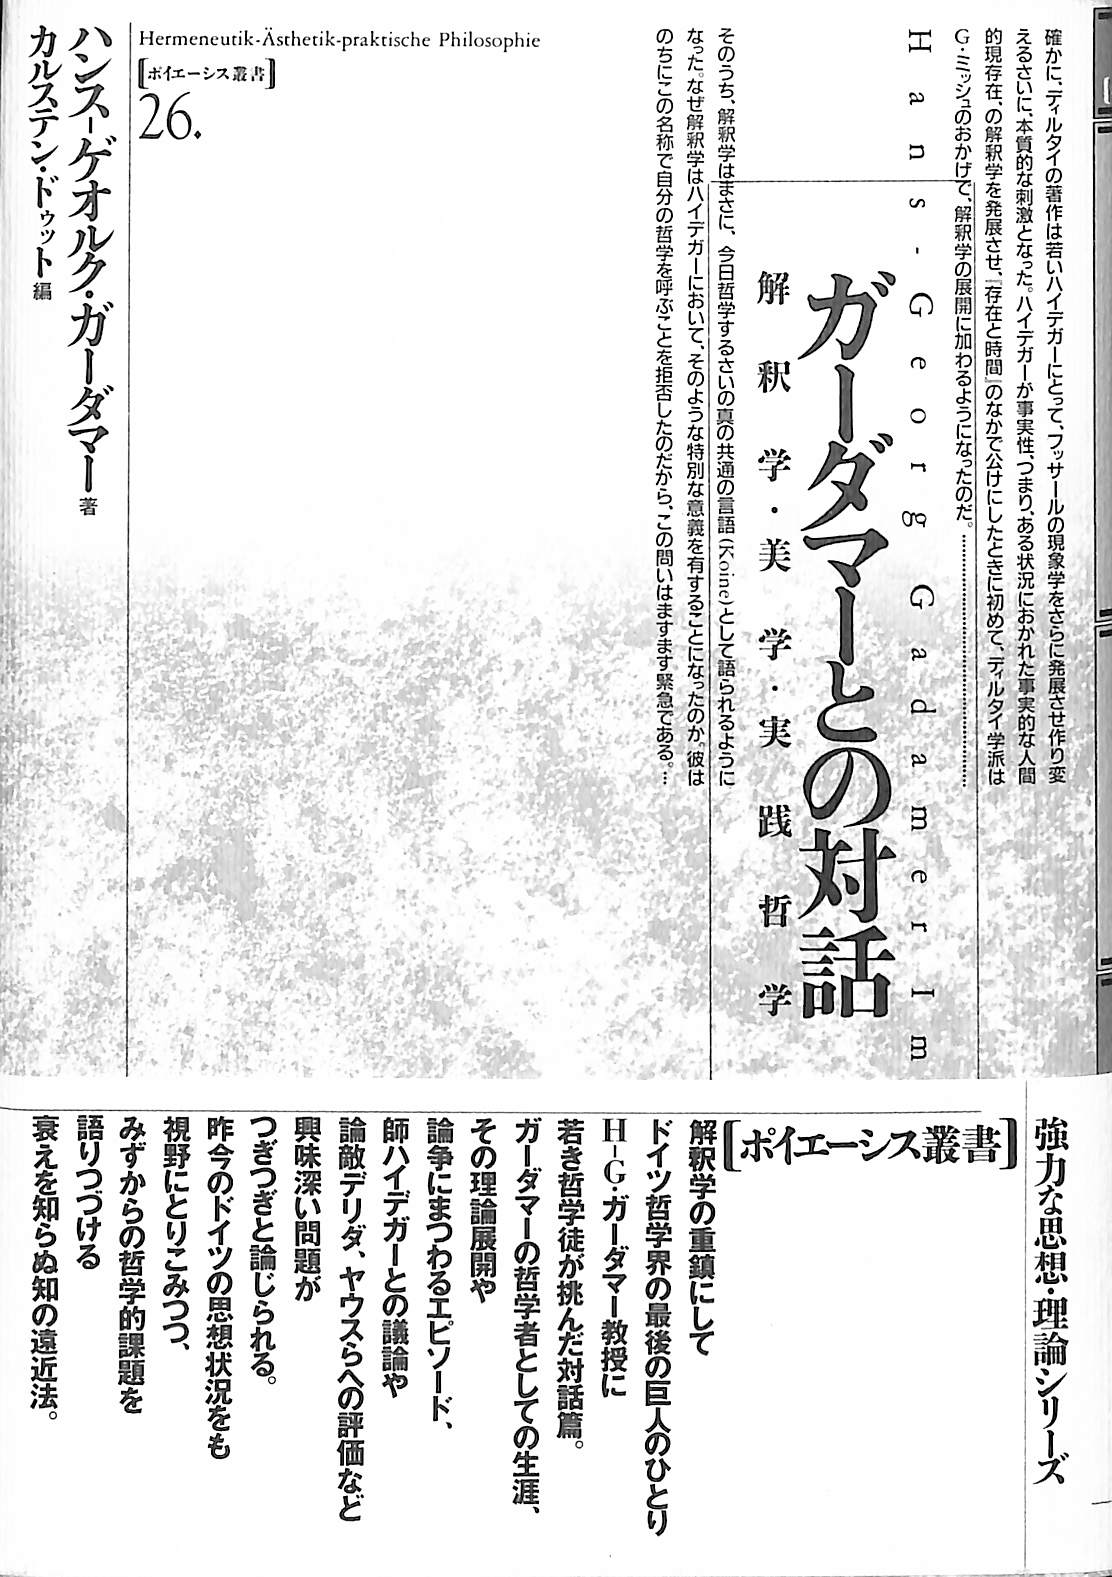 確かに、ディルタイの著作は若いハイデガーにとって、フッサールの現象学をさらに発展させ作り変
えるさいに、本質的な刺激となった。ハイデガーが事実性、つまり、ある状況におかれた事実的な人間
的現存在、の解釈学を発展させ、『存在と時間』のなかで公けにしたときに初めて、ディルタイ学派は
G・ミッシュのおかげで、解釈学の展開に加わるようになったのだ。……………………………
Hans-Georg Gadamer Im
ガーダマーとの対話
解釈学・美学・実践哲学
そのうち、解釈学はまさに、今日哲学するさいの真の共通の言語(Koine)として語られるように
なった。なぜ解釈学はハイデガーにおいて、そのような特別な意義を有することになったのか。彼は
のちにこの名称で自分の哲学を呼ぶことを拒否したのだから、この問いはますます緊急である。…
Hermeneutik-Ästhetik-praktische Philosophie
[ポイエーシス叢書]
26.
ハンス-ゲオルク・ガーダマー 著
カルステン・ドゥット 編
強力な思想・理論シリーズ
[ポイエーシス叢書]
解釈学の重鎮にして
ドイツ哲学界の最後の巨人のひとり
H-G・ガーダマー教授に
若き哲学徒が挑んだ対話篇。
ガーダマーの哲学者としての生涯、
その理論展開や
論争にまつわるエピソード、
師ハイデガーとの議論や
論敵デリダ、ヤウスらへの評価など
興味深い問題が
つぎつぎと論じられる。
昨今のドイツの思想状況をも
視野にとりこみつつ、
みずからの哲学的課題を
語りつづける
衰えを知らぬ知の遠近法。